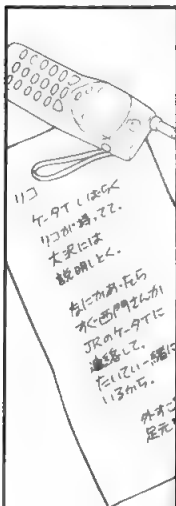 リコ
ケータイしばらく
リコが持ってて。
大沢には
説明しとく。
なにかあったら
すぐ西門さんか
JRのケータイに
連絡して。
たいてい一緒に
いるから。
外すご
足元